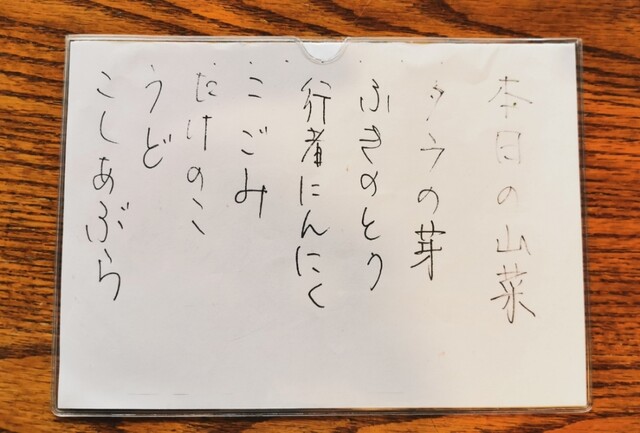 本日の山菜
タラの芽
ふきのとう
行者にんにく
こごみ
たけのこ
うど
こしあぶら